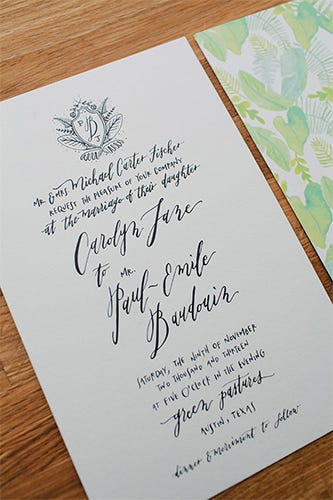 P B J
Mr. & Mrs. Michael Carter Fischer
REQUEST THE PLEASURE OF YOUR COMPANY
at the marriage of their daughter
Carolyn Jane
to MR.
Paul-Emile
Baudouin
SATURDAY, THE NINTH OF NOVEMBER
TWO THOUSAND AND THIRTEEN
AT FIVE O'CLOCK IN THE EVENING
green pastures
AUSTIN, TEXAS
dinner & merriment to follow